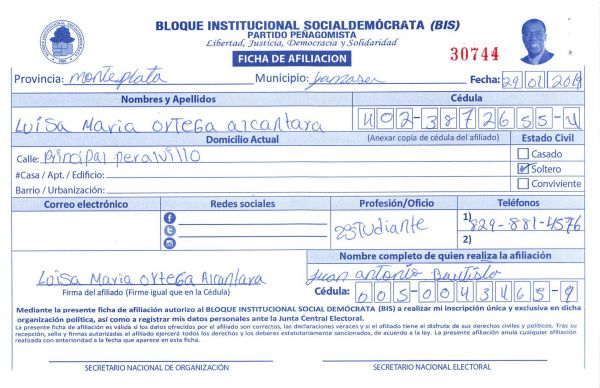 BLOQUE INSTITUCIONAL SOCIALDEMÓCRATA (BIS)
PARTIDO PEÑAGOMISTA
Libertad, Justicia, Democracia y Solidaridad
FICHA DE AFILIACION
30744
Provincia: monteplata Municipio: Fecha: 29 01 2019
Nombres y Apellidos Cédula
Luisa Maria ortega alcantara 402-3872655-4
Domicilio Actual (Anexar copia de cédula del afiliado) Estado Civil
Calle: Principal peralvillo
Casado
#Casa / Apt. / Edificio: Soltero
Barrio / Urbanización: Conviviente
Correo electrónico Redes sociales Profesión/Oficio Teléfonos
estudiante
1) 829-881-4576
2)
Nombre completo de quien realiza la afiliación
Juan antonio Bautista
Luisa Maria ortega Alcantara
Firma del afiliado (Firme igual que en la Cédula) Cédula: 005-0043465-9
Mediante la presente ficha de afiliación autorizo al BLOQUE INSTITUCIONAL SOCIAL DEMÓCRATA (BIS) a realizar mi inscripción única y exclusiva en dicha
organización política, así como a registrar mis datos personales ante la Junta Central Electoral.
La presente ficha de afiliación es válida si los datos ofrecidos por el afiliado son correctos, las declaraciones veraces y si el afiliado tiene el disfrute de sus derechos civiles y políticos. Tras su
recepción, sello y firmas autorizadas el afiliado ejercerá todos los derechos y los deberes estatutariamente sancionados, de acuerdo a la ley. La presente afiliación anula cualquier afiliación
realizada con anterioridad a la fecha que aparece en esta ficha.
SECRETARIO NACIONAL DE ORGANIZACIÓN SECRETARIO NACIONAL ELECTORAL